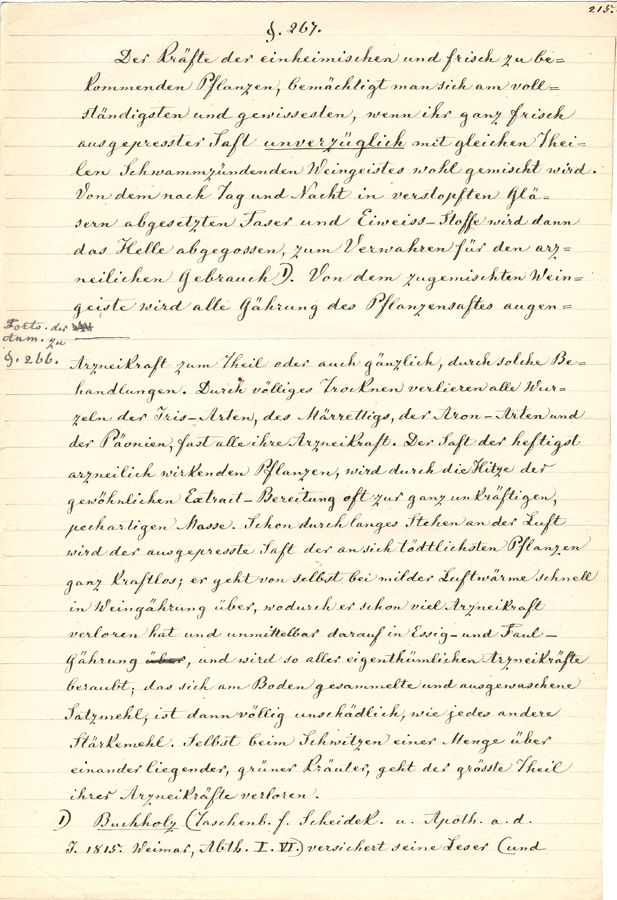 215.
§. 267.
Der Kräfte der einheimischen und frisch zu be=
kommenden Pflanzen, bemächtigt man sich am voll=
ständigsten und gewissesten, wenn ihr ganz frisch
ausgepresster Saft unverzüglich mit gleichen Thei=
len Schwammzündenden Weingeistes wohl gemischt wird.
Von dem nach Tag und Nacht in verstopften Glä=
sern abgesetzten Faser und Eiweiss-Stoffe wird dann
das Helle abgegossen, zum Verwahren für den arz=
neilichen Gebrauch 1). Von dem zugemischten Wein=
geiste wird alle Gährung des Pflanzensaftes augen=
Forts. der
Anm. zu
§. 266.
Arzneikraft zum Theil oder auch gänzlich, durch solche Be=
handlungen. Durch völliges Trocknen verlieren alle Wur=
zeln der Iris-Arten, des Märrettigs, der Aron-Arten und
der Päonien, fast alle ihre Arzneikraft. Der Saft der heftigst
arzneilich wirkenden Pflanzen, wird durch die Hitze der
gewöhnlichen Extract-Bereitung oft zur ganz unkräftigen,
pechartigen Masse. Schon durch langes Stehen an der Luft
wird der ausgepresste Saft der an sich tödtlichsten Pflanzen
ganz kraftlos; er geht von selbst bei milder Luftwärme schnell
in Weingährung über, wodurch er schon viel Arzneikraft
verloren hat und unmittelbar darauf in Essig- und Faul-
Gährung über, und wird so aller eigenthümlichen Arzneikräfte
beraubt; das sich am Boden gesammelte und ausgewaschene
Satzmehl, ist dann völlig unschädlich, wie jedes andere
Stärkemehl. Selbst beim Schwitzen einer Menge über
einander liegender, grüner Kräuter, geht der grösste Theil
ihrer Arzneikräfte verloren.
1) Buchholz (Taschenb. f. Scheidek. u. Apoth. a. d.
J. 1815. Weimar, Abth. I. VI.) versichert seine Leser (und